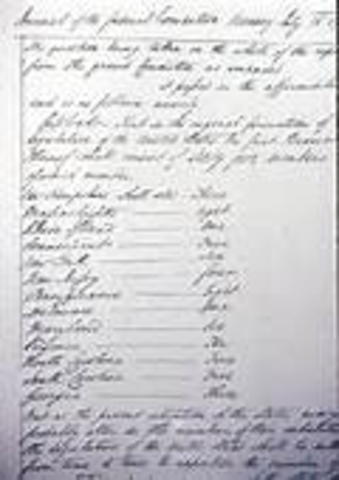 Journal of the federal Convention Monday July 16
The question being taken on the whole of the report
from the grand Committee as amended
it passed in the affirmative
and is as follows namely
Resolved That in the original formation of the
Legislature of the United States the first Branch
thereof shall consist of Sixty five members
of which number
New Hampshire shall send Three
Massachusetts Eight
Rhode Island One
Connecticut Five
New York Six
New Jersey Four
Pennsylvania Eight
Delaware One
Maryland Six
Virginia Ten
North Carolina Five
South Carolina Five
Georgia Three
But as the present situation of the States may
probably alter in the number of their inhabitants
the Legislature of the United States shall be
from time to time to apportion the number of